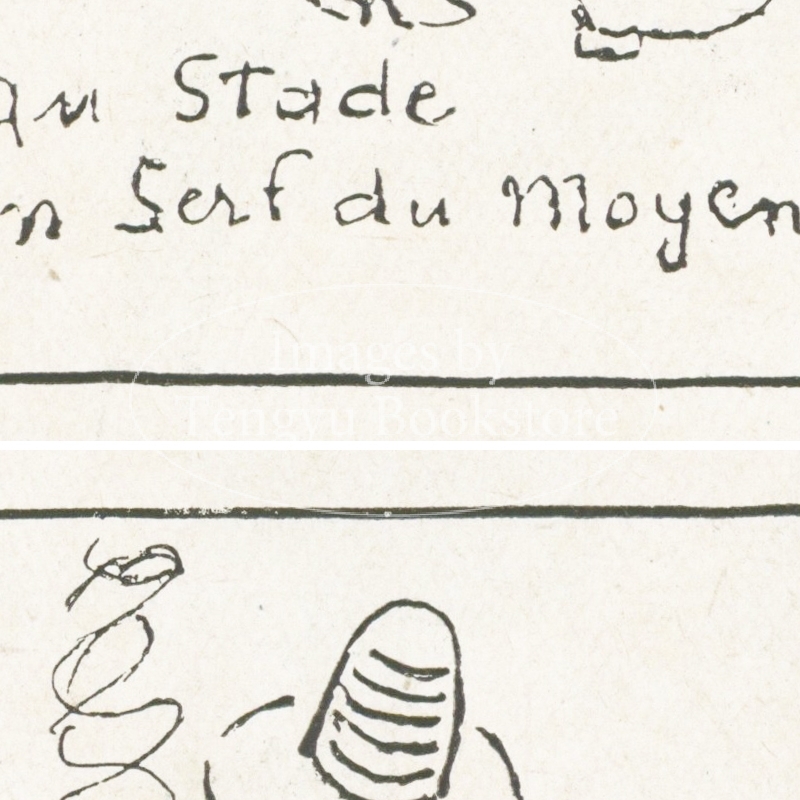 au Stade
Serf du Moyen
Images by
Tengyu Bookstore